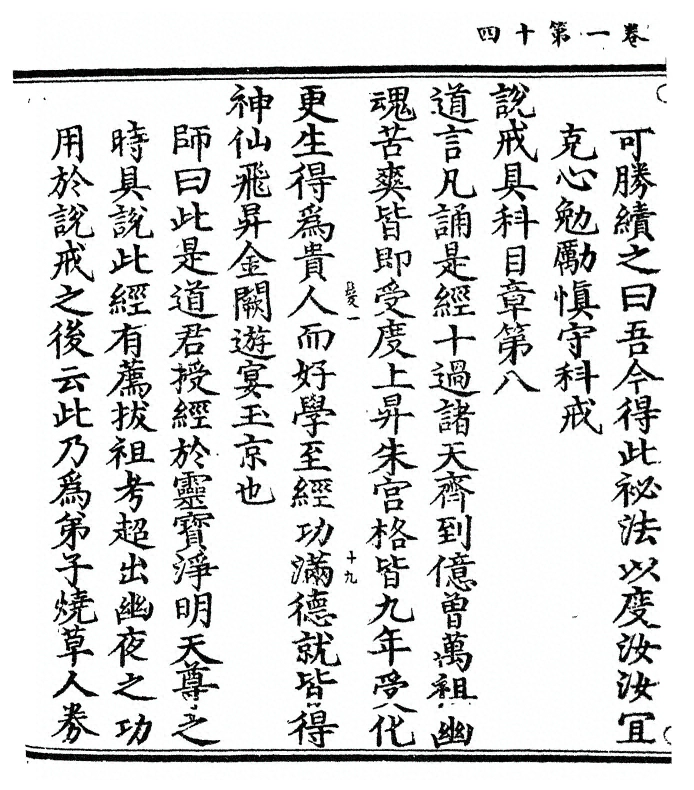 四十第一卷
可勝續之曰吾今得此祕法以度汝汝冝
克心勉勵愼守科戒
說戒具科目章第八
道言凡誦是經十過諸天齊到億曽萬祖幽
魂苦爽皆即受度上昇朱宫格皆九年受化
更生得爲貴人而好學至經功滿德就皆得
受一
十九
神仙飛昇金闕遊宴玉京也
師曰此是道君授經於靈寶淨明天尊之
時具說此經有薦拔祖考超出幽夜之功
用於說戒之後云此乃爲弟子燒草人劵